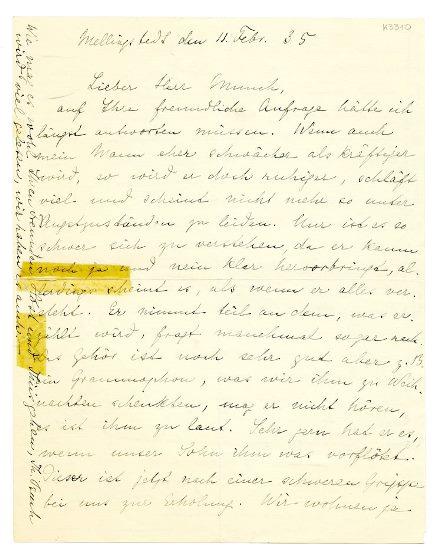 K3310
Mellingstedt den 11. Febr. 35
Lieber Herr Munch,
auf Ihre freundliche Anfrage hätte ich
längst antworten müssen. Wenn auch
mein Mann eher schwächer als kräftiger
wird, so wird er doch ruhiger, schläft
viel und scheint nicht mehr so unter
Angstzuständen zu leiden. Nur ist es so
schwer sich zu verstehen, da er kaum
noch ja und nein klar hervorbringt, al-
lerdings scheint es, als wenn er alles ver-
steht. Er nimmt teil an dem, was er-
zählt wird, fragt manchmal sogar nach.
Das Gehör ist noch sehr gut aber z. B.
ein Grammophon, was wir ihm zu Weih-
nachten schenkten, mag er nicht hören,
es ist ihm zu laut. Sehr gern hat er es,
wenn unser Sohn ihm was vorflötet.
Dieser ist jetzt nach einer schweren Grippe
bei uns zur Erholung. Wir wohnen ja
Wie mag es wohl Ihnen
wird viel gelesen, wir haben